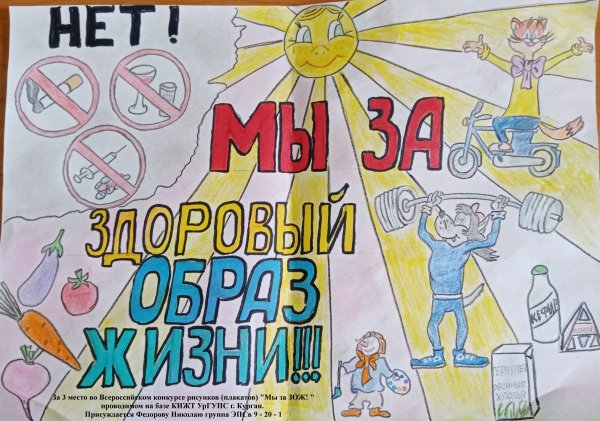 НЕТ!
МЫ ЗА
ЗДОРОВЫЙ
ОБРАЗ
ЖИЗНИ!!!
КЕФИР
МОЛОКО
ГЕРКУЛЕС
ОВСЯНЫЕ
ХЛОПЬЯ
За 3 место во Всероссийском конкурсе рисунков (плакатов) "Мы за ЗОЖ! "
проводимом на базе КИЖТ УрГУПС г. Курган.
Присуждается Федорову Николаю группа ЭПСв 9 - 20 - 1